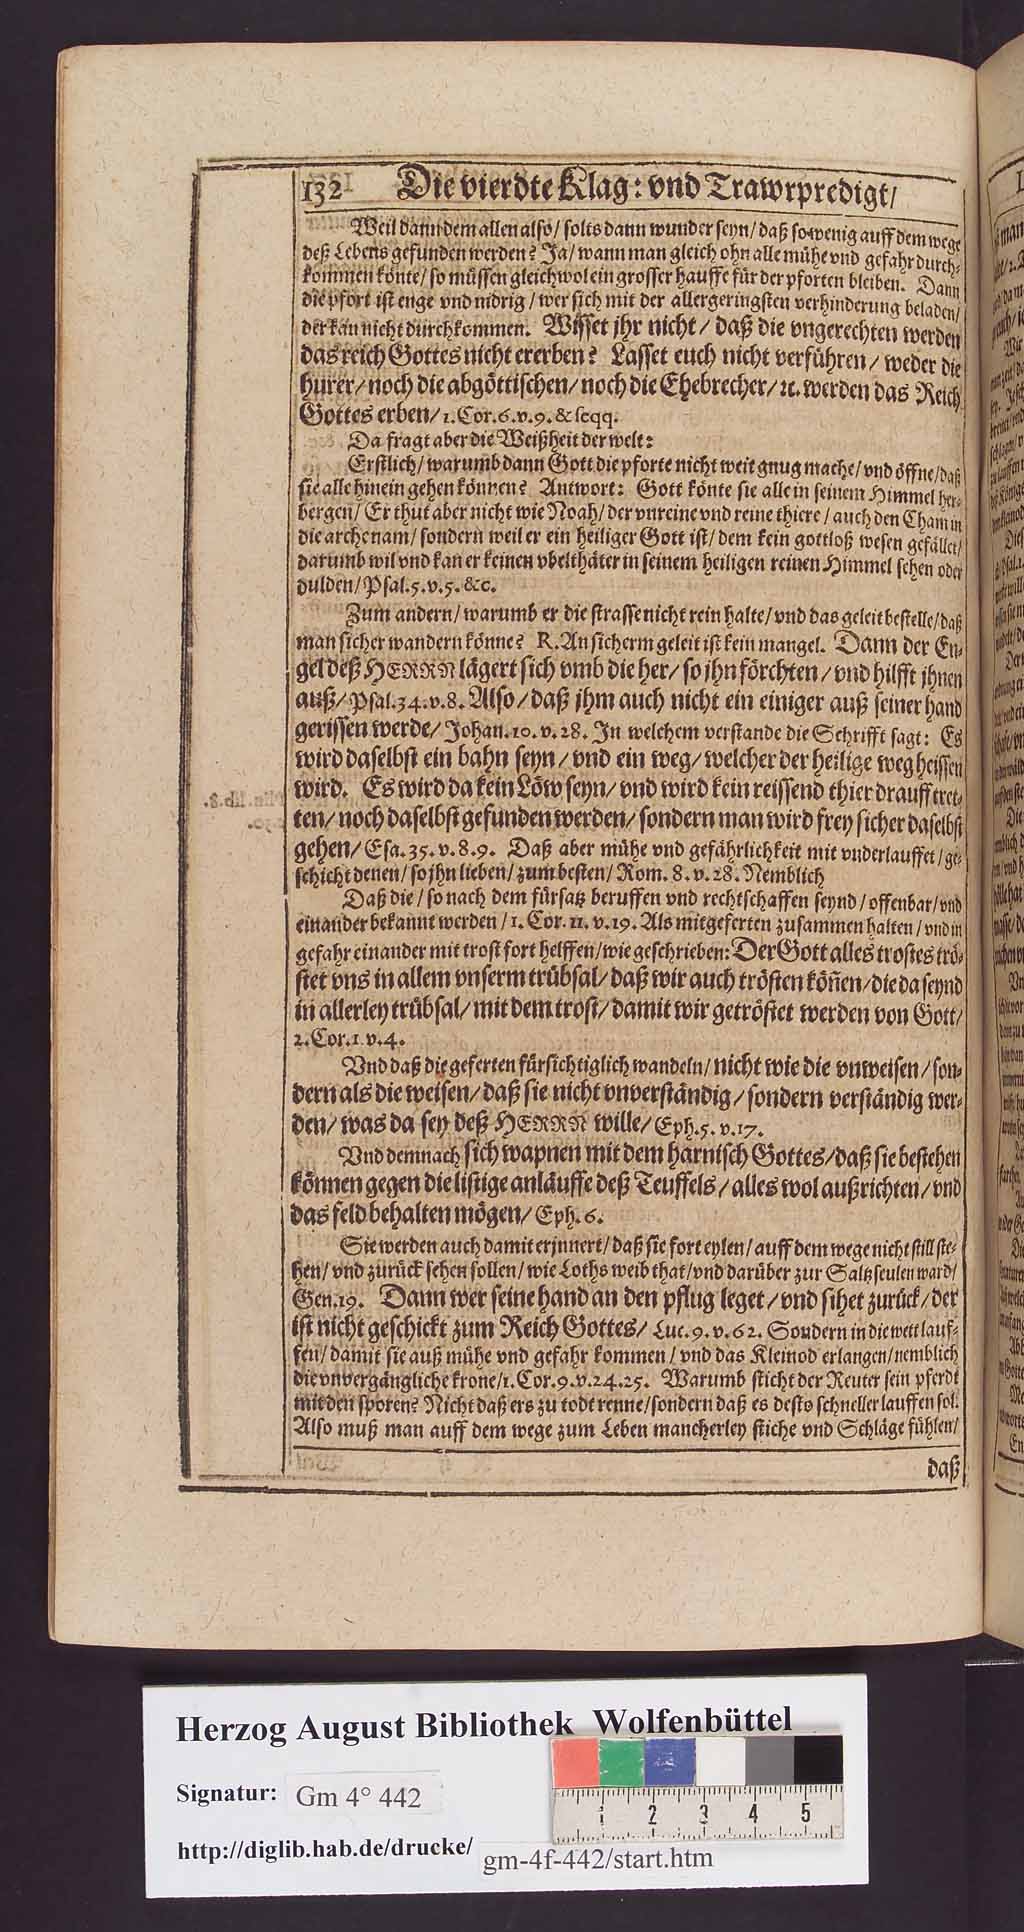 132 Die vierdte Klag: vnd Trawrpredigt/
Weil dann dem allen also/ solts dann wunder seyn/ daß so wenig auff dem wege
deß Lebens gefunden werden? Ja/ wann man gleich ohn alle mühe vnd gefahr durch-
kommen könte/ so müssen gleichwol ein grosser hauffe für der pforten bleiben. Dann
die pfort ist enge vnd nidrig/ wer sich mit der allergeringsten verhinderung beladen/
der kan nicht durchkommen. Wisset jhr nicht/ daß die vngerechten werden
das reich Gottes nicht ererben? Lasset euch nicht verführen/ weder die
hurer/ noch die abgöttischen/ noch die Ehebrecher/ ꝛc. werden das Reich
Gottes erben/ 1. Cor. 6. v. 9. & seqq.
Da fragt aber die Weißheit der welt:
Erstlich/ warumb dann Gott die pforte nicht weit gnug mache/ vnd öffne/ daß
sie alle hinein gehen können? Antwort: Gott könte sie alle in seinem Himmel her-
bergen/ Er thut aber nicht wie Noah/ der vnreine vnd reine thiere/ auch den Cham in
die arche nam/ sondern weil er ein heiliger Gott ist/ dem kein gottloß wesen gefället/
darumb wil vnd kan er keinen vbelthäter in seinem heiligen reinen Himmel sehen oder
dulden/ Psal. 5. v. 5. &c.
Zum andern/ warumb er die strasse nicht rein halte/ vnd das geleit bestelle/ daß
man sicher wandern könne? R. An sicherm geleit ist kein mangel. Dann der En-
gel deß HERRN lägert sich vmb die her/ so jhn förchten/ vnd hilfft jhnen
auß/ Psal. 34. v. 8. Also/ daß jhm auch nicht ein einiger auß seiner hand
gerissen werde/ Johan. 10. v. 28. In welchem verstande die Schrifft sagt: Es
wird daselbst ein bahn seyn/ vnd ein weg/ welcher der heilige weg heissen
wird. Es wird da kein Löw seyn/ vnd wird kein reissend thier drauff tret-
ten/ noch daselbst gefunden werden/ sondern man wird frey sicher daselbst
gehen/ Esa. 35. v. 8. 9. Daß aber mühe vnd gefährlichkeit mit vnderlauffet/ ge-
schicht denen/ so jhn lieben/ zum besten/ Rom. 8. v. 28. Nemblich
Daß die/ so nach dem fürsatz beruffen vnd rechtschaffen seynd/ offenbar/ vnd
einander bekannt werden/ 1. Cor. 11. v. 19. Als mitgeferten zusammen halten/ vnd in
gefahr einander mit trost fort helffen/ wie geschrieben: Der Gott alles trostes trö-
stet vns in allem vnserm trübsal/ daß wir auch trösten köñen/ die da seynd
in allerley trübsal/ mit dem trost/ damit wir getröstet werden von Gott/
2. Cor. 1. v. 4.
Vnd daß die geferten fürsichtiglich wandeln/ nicht wie die vnweisen/ son-
dern als die weisen/ daß sie nicht vnverständig/ sondern verständig wer-
den/ was da sey deß HERRN wille/ Eph. 5. v. 17.
Vnd demnach sich wapnen mit dem harnisch Gottes/ daß sie bestehen
können gegen die listige anläuffe deß Teuffels/ alles wol außrichten/ vnd
das feld behalten mögen/ Eph. 6.
Sie werden auch damit erjnnert/ daß sie fort eylen/ auff dem wege nicht still ste-
hen/ vnd zurück sehen sollen/ wie Loths weib that/ vnd darüber zur Saltzseulen ward/
Gen. 19. Dann wer seine hand an den pflug leget/ vnd sihet zurück/ der
ist nicht geschickt zum Reich Gottes/ Luc. 9. v. 62. Sondern in die wett lauf-
fen/ damit sie auß mühe vnd gefahr kommen/ vnd das Kleinod erlangen/ nemblich
die vnvergängliche krone/ 1. Cor. 9. v. 24. 25. Warumb sticht der Reuter sein pferdt
mit den sporen? Nicht daß ers zu todt renne/ sondern daß es desto schneller lauffen sol.
Also muß man auff dem wege zum Leben mancherley stiche vnd Schläge fühlen/
daß
Herzog August Bibliothek Wolfenbüttel
Signatur: Gm 4° 442
http://diglib.hab.de/drucke/ gm-4f-442/start.htm
1 2 3 4 5